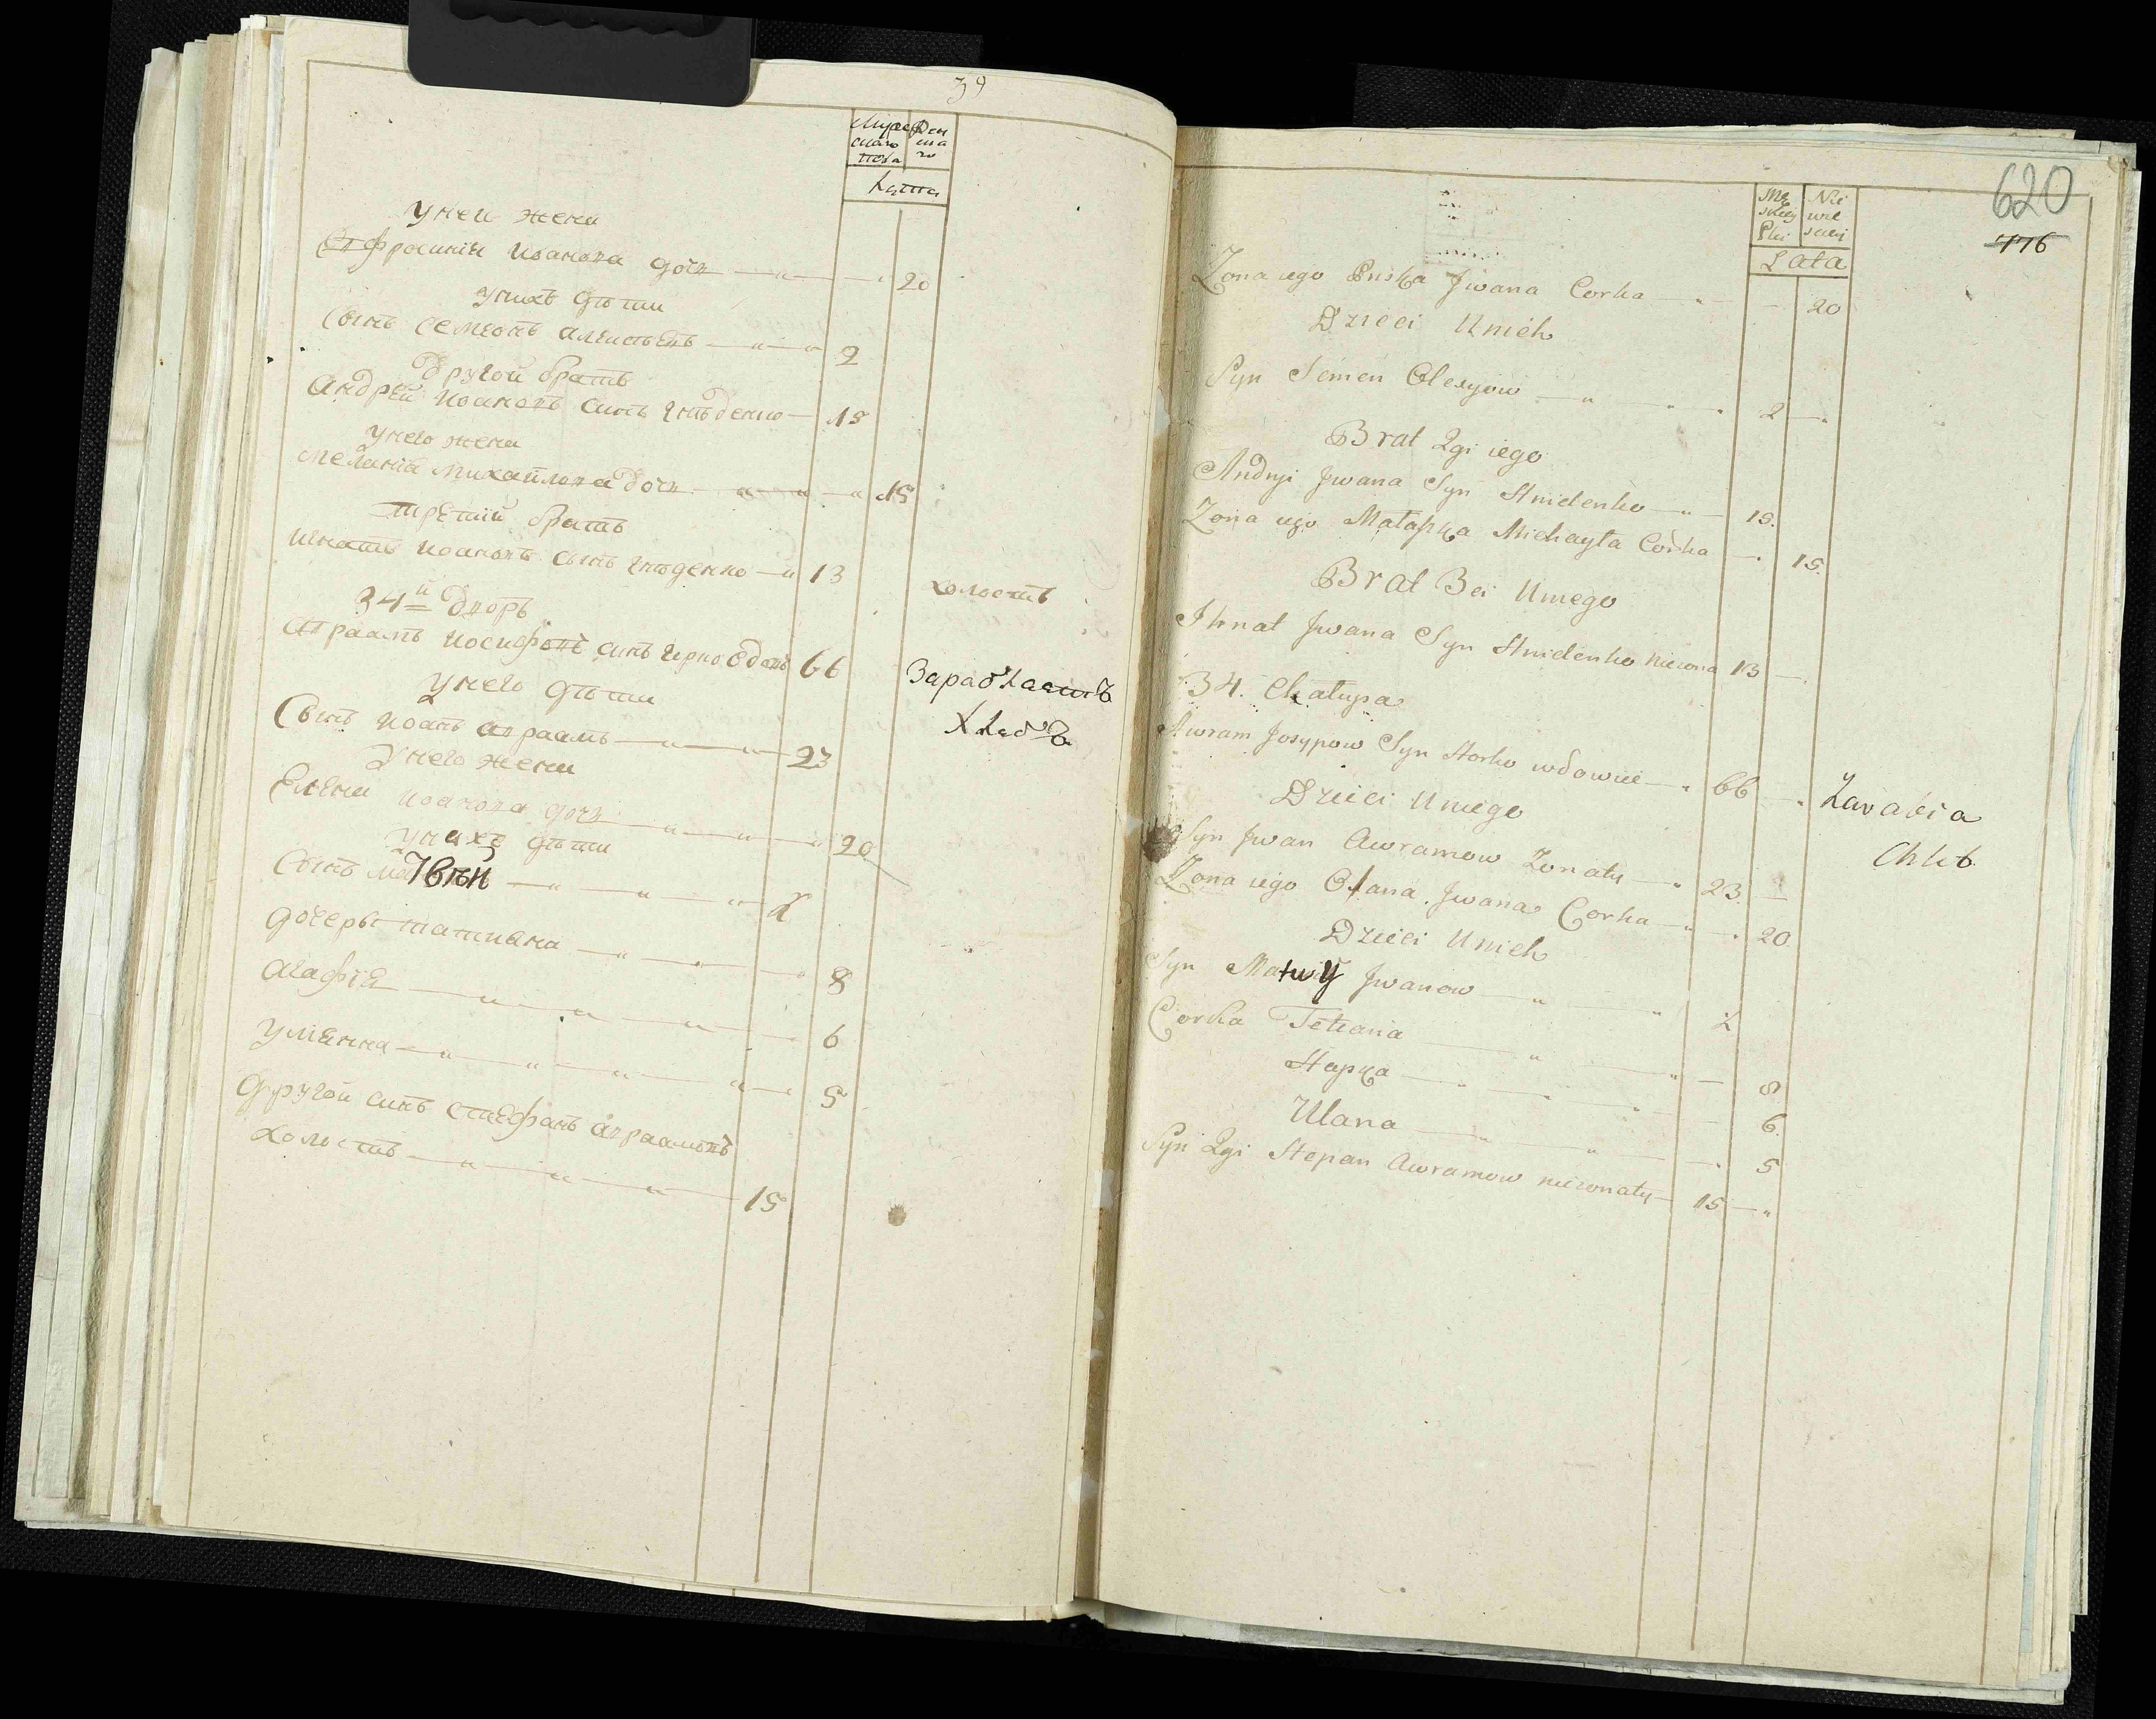 39
Мужеска пола
Женска го
Лѣта
У неи жени
Евфросиния Иоанова дочь — 20
У нихъ дѣти
Сынъ Семеонъ Алексѣевъ — 2
Другой братъ
Андрей Иоановъ синъ Гнѣденко — 15
У него жени
Мелания Михайлова дочь — 15
Третий братъ
Игнатъ Иоановъ сынъ Гнѣденко — 13 холостъ
34й Дворъ
Авраамъ Иосифовъ синъ вдовъ 66 Заработаетъ
Хлебъ
У него дѣти
Сынъ Иоанъ Авраамъ — 23
У него жени
Елени Иоанова дочь — 20
У нихъ дѣти
Сынъ — 2
Дочеры Татияна — 8
Агафiя — 6
Улiянна — 5
Другой синъ Стефанъ Авраамовъ
холостъ — 15
620
776
Mę skiey Płci
Nie wie sciey
Lata
Zona iego Pryska Jwana Corka — 20
Dzieci Unich
Syn Semen Olexyow — 2
Brat 2gi iego
Andryi Jwana Syn Hnidenko — 15.
Zona iego Małaszka Michayła Corka — 15.
Brat 3ci Uniego
Ihnat Jwana Syn Hnidenko niezona 13
34. Chałupa
Awram Josypow Syn wdowiec — 66 Zarabia
Chleb
Dzieci Uniego
Syn Jwan Awramow Zonaty — 23.
Zona iego Olana Jwana Corka — 20.
Dzieci Unich
Syn Matwij Jwanow — 2
Corka Tetiana — 8
Hapka — 6.
Ulana — 5
Syn 2gi Stepan Awramow niezonaty — 15